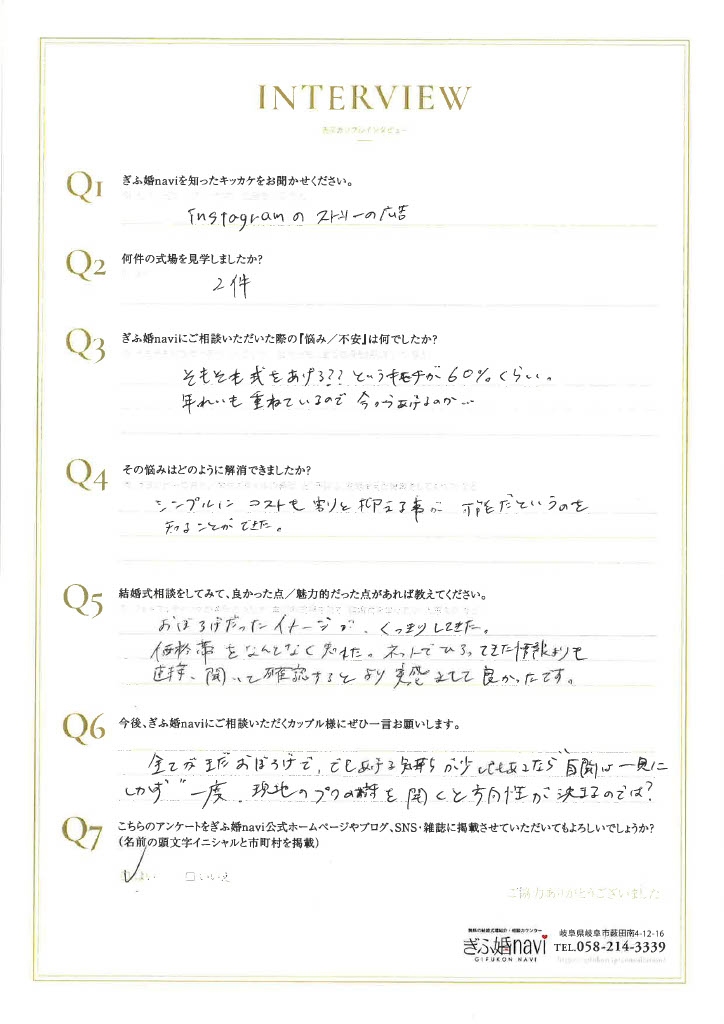 INTERVIEW
Q1 ぎふ婚naviを知ったキッカケをお聞かせください。
Instagramの ストーリーの広告
Q2 何件の式場を見学しましたか?
2件
Q3 ぎふ婚naviにご相談いただいた際の『悩み／不安』は何でしたか?
そもそも式をあげる?? という気持ちが60%くらい。
年れいも重ねているので 今からあげるのか…
Q4 その悩みはどのように解消できましたか?
シンプルに コストも割りと抑える事が 可能だというのを
知ることができた。
Q5 結婚式相談をしてみて、良かった点／魅力的だった点があれば教えてください。
おぼろげだったイメージが、くっきりしてきた。
価格帯をなんとなく知れた。ネットでひろってきた情報よりも
直接、聞いて確認するとより実感として良かったです。
Q6 今後、ぎふ婚naviにご相談いただくカップル様にぜひ一言お願いします。
全てがまだおぼろげで、でもあげる気持ちが少しでもあるなら"百聞は一見に
しかず"一度、現地のプロの声を聞くと方向性が決まるのでは?
Q7 こちらのアンケートをぎふ婚navi公式ホームページやブログ、SNS・雑誌に掲載させていただいてもよろしいでしょうか?
(名前の頭文字イニシャルと市町村を掲載)
はい □いいえ
ご協力ありがとうございました
無料の結婚式場紹介・相談カウンター
ぎふ婚navi
GIFUKON NAVI
岐阜県岐阜市薮田南4-12-16
TEL.058-214-3339